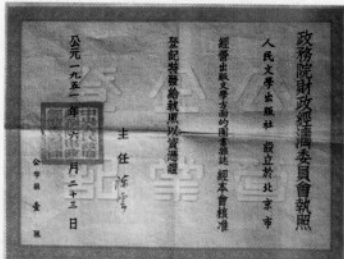 政務院財政經濟委員會執照
人民文學出版社 設立於北京市
經營出版文學方面的圖書雜誌 經本會核准
登記特發給執照以資憑證
主任 陳雲
公元一九五一年六月二十三日